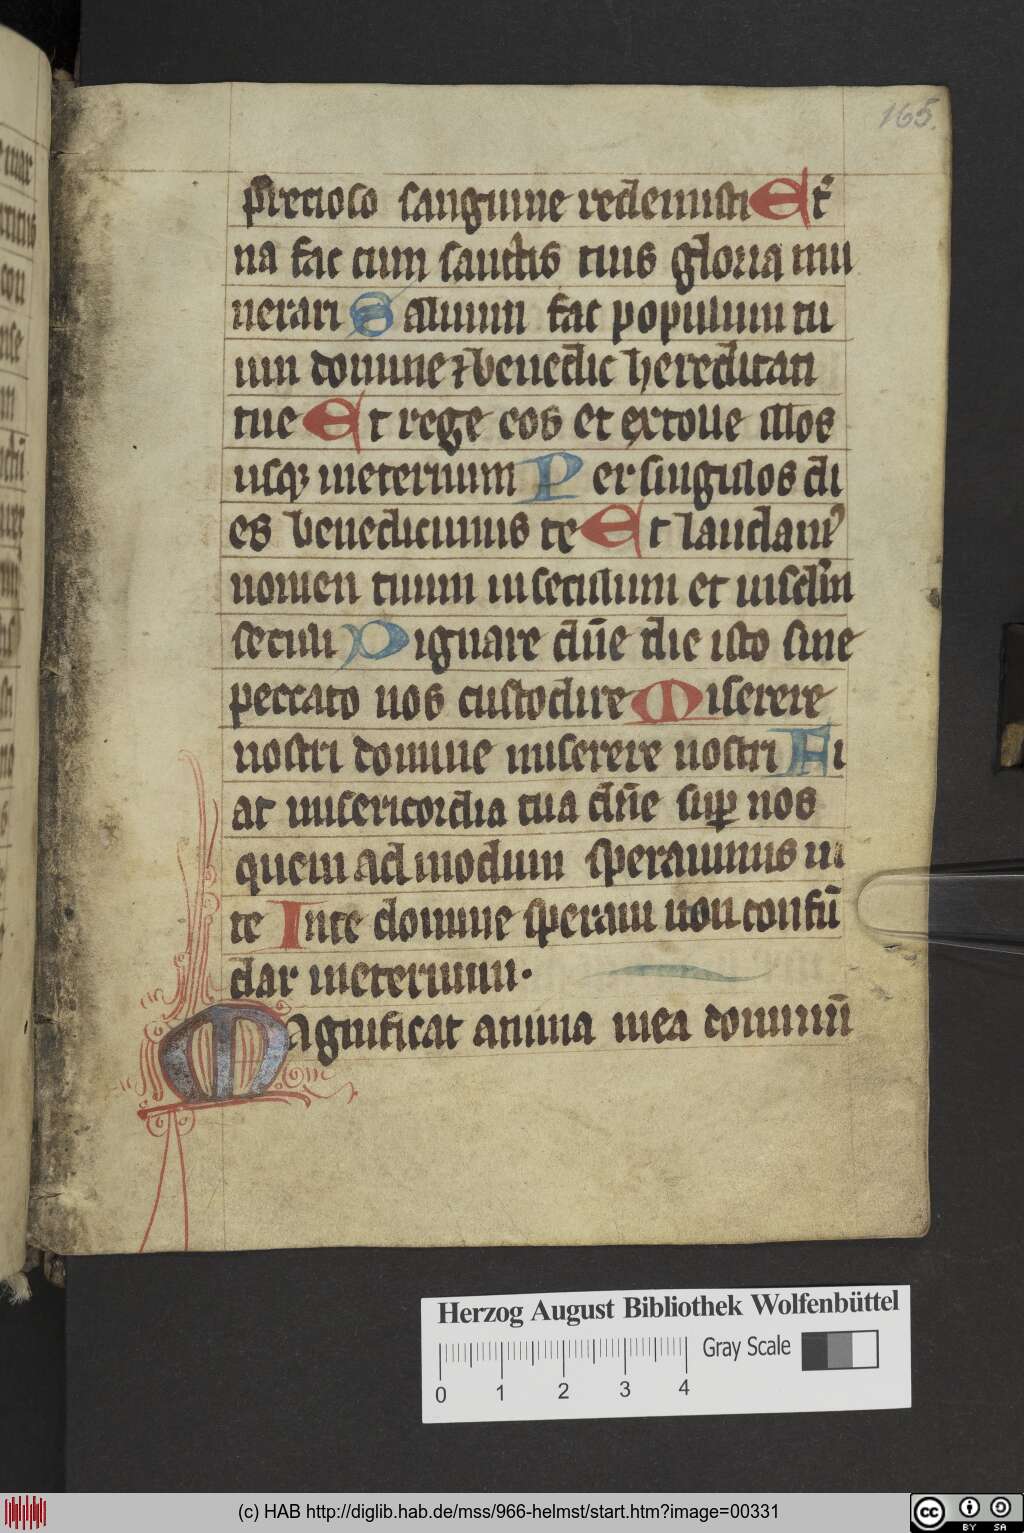 165.
p̄recioso sanguine redemisti Et̾
na fac cum sanctis tuis gloria mu
nerari Saluum fac populum tu
um domine ⁊ benedic hereditati
tue Et rege eos et extolle illos
usqꝫ ineternum Per singulos di
es benedicimus te Et laudamꝰ
nomen tuum insecul̄um et inscl̄m
seculi Dignare dn̄e die isto sine
peccato nos custodire Miserere
nostri domine miserere nostri Fi
at misericordia tua dn̄e suꝑ nos
quem ad modum sperauimus in
te Inte domine speraui non confū
dar ineternum.
Magnificat anima mea dominū
Herzog August Bibliothek Wolfenbüttel
Gray Scale
0 1 2 3 4
(c) HAB http://diglib.hab.de/mss/966-helmst/start.htm?image=00331
cc BY SA